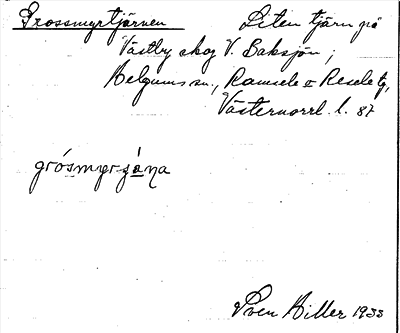 Grossmyrtjärnen Liten tjärn på
Västby skog V. Baksjön;
Helgums sn., Ramsele o Resele tg,
Västernorrl. l. 87
grósmyrɟä́na
Sven Hiller 1933